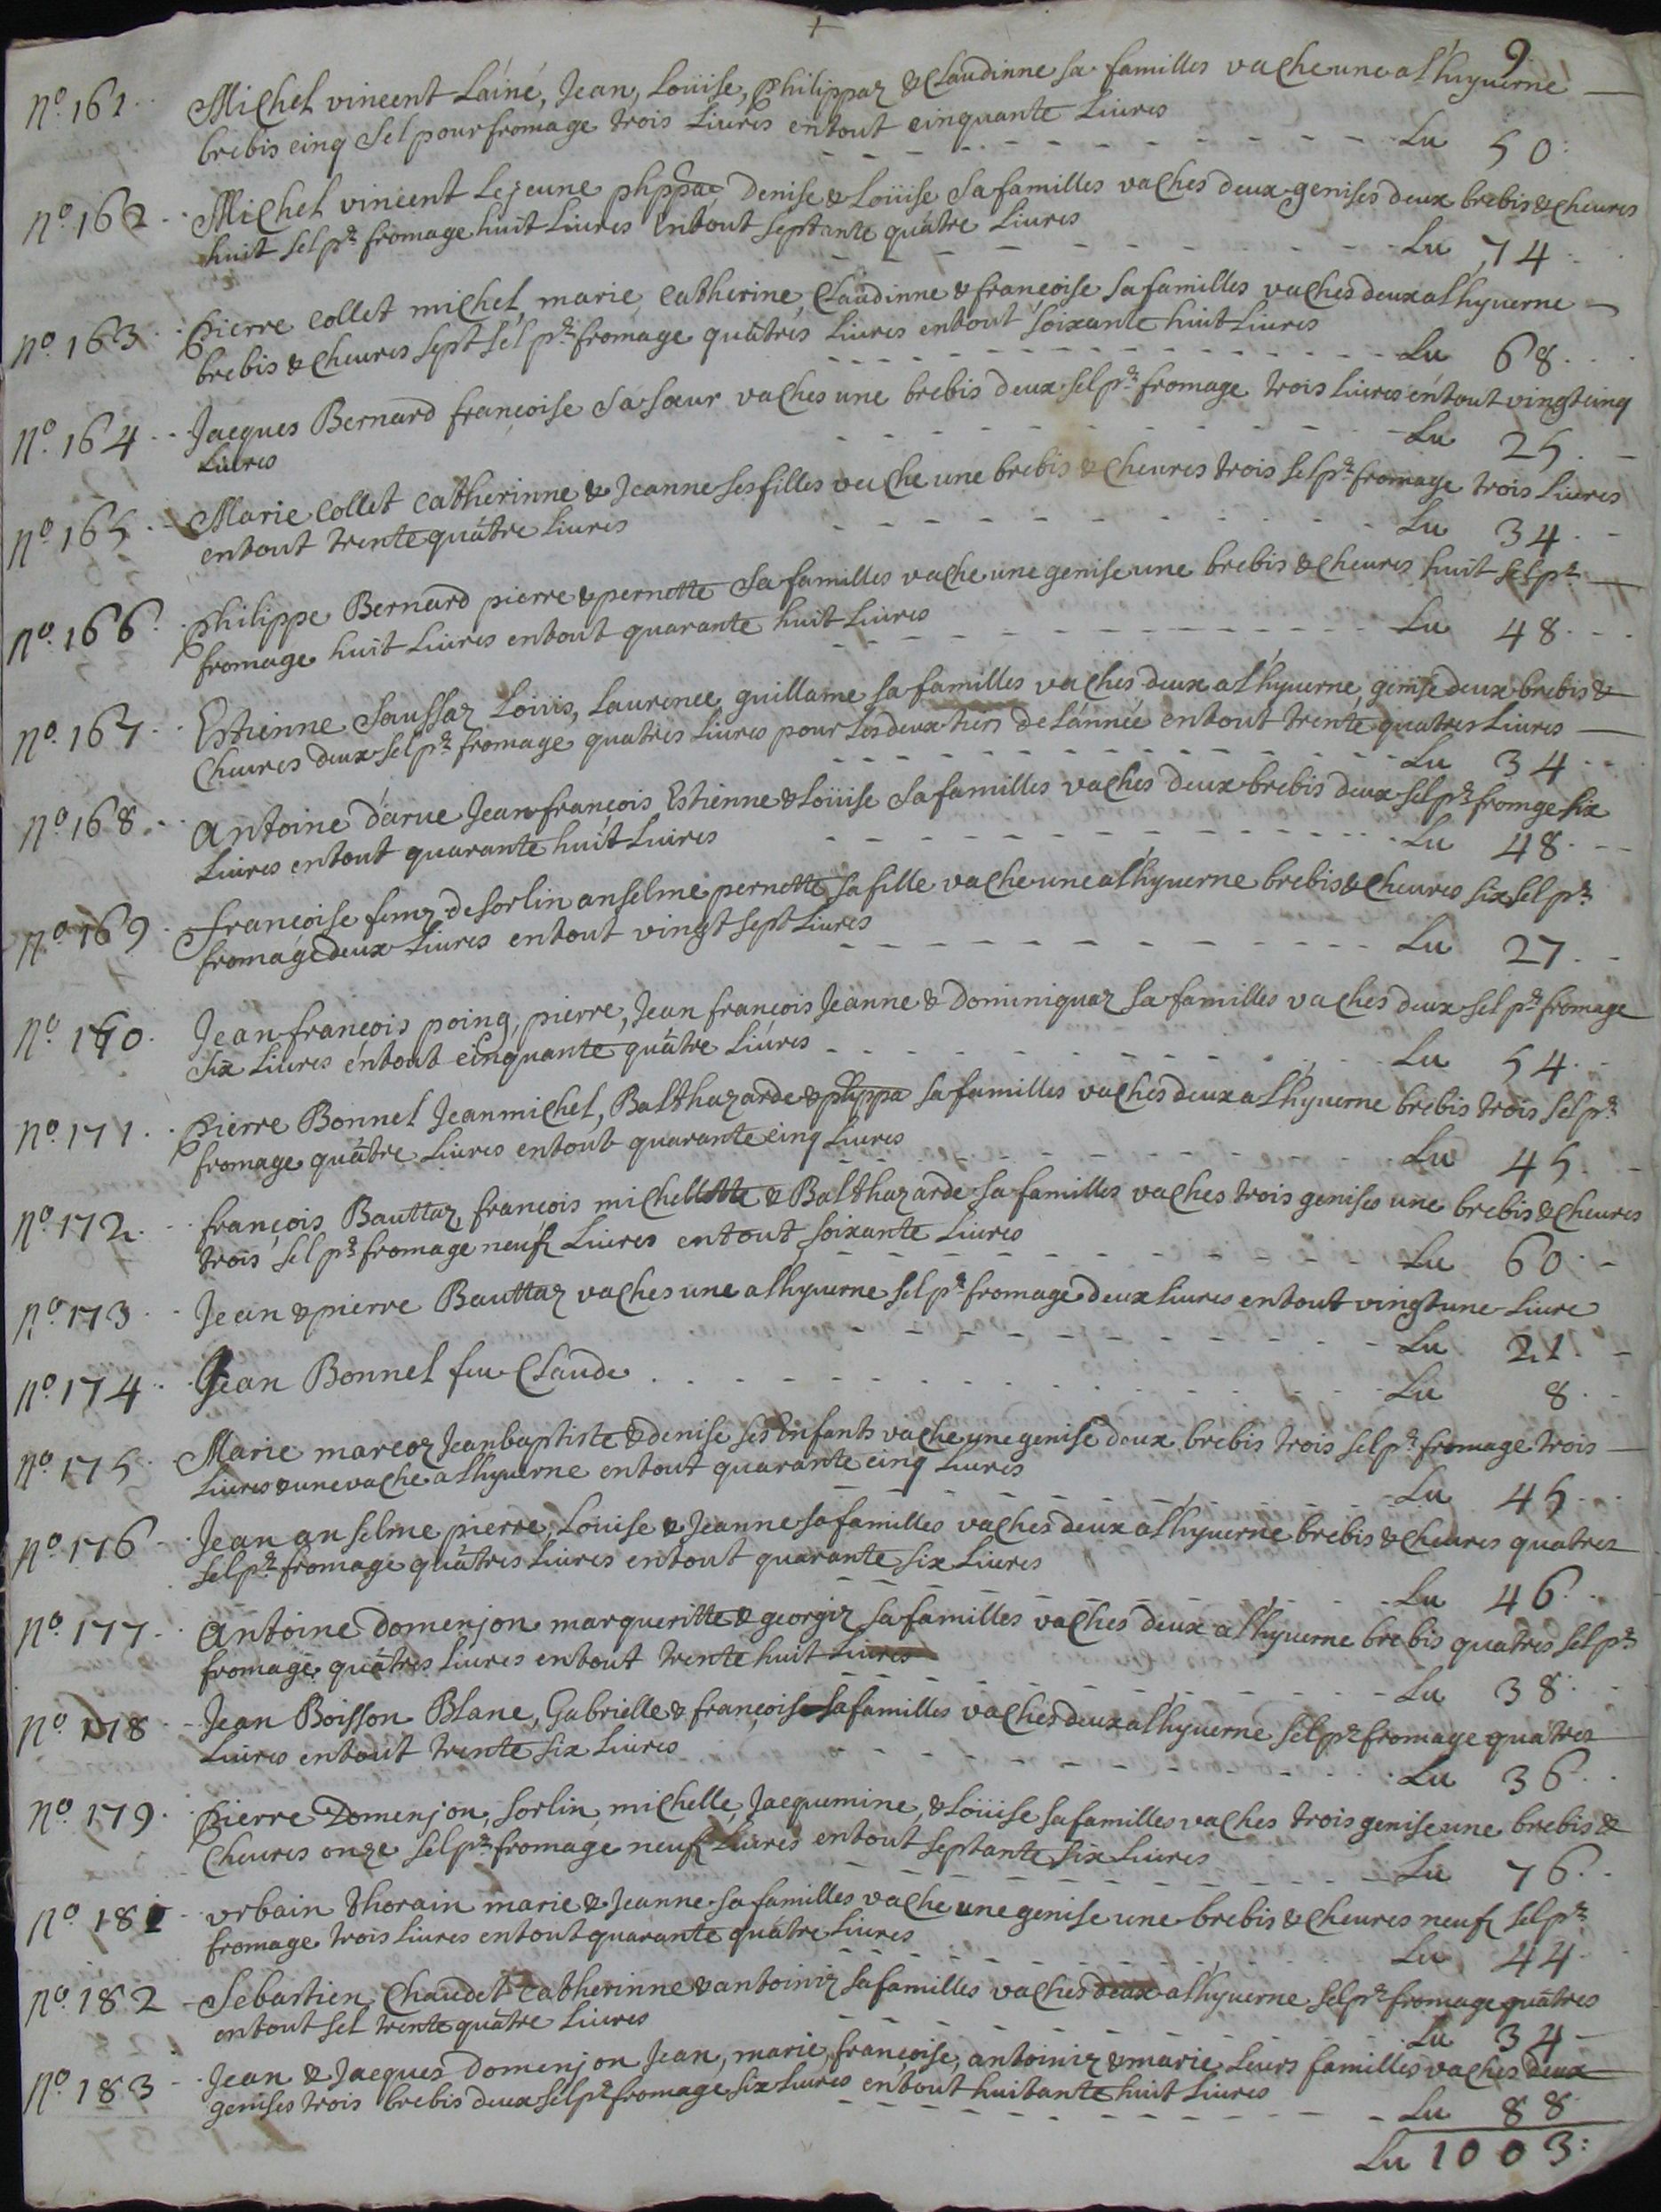 +
9
No. 161 Michel vincent Láiné, Jean, Loüise, Philippaz & Claudinne sa familles vache une a l'hyuerne
brebis cinq sel pour fromage trois Liures entout cinquante Liures
Lu 50
No. 162 Michel vincent Lejeune phppae, Denise & Loüise sa familles vaches deux genises deux brebis & cheures
huit sel pr fromage huit Liures Entout septante quatre Liures
Lu 74
No. 163 Pierre Collet michel, marie, Catherine, Claudinne & françoise sa familles vaches deux a lhyuerne
brebis & cheures sept sel pr fromage quatres Liures entout soixante huit Liures
Lu 68
No. 164 Jacques Bernard françoise sa sœur vaches une brebis deux sel pr fromage trois Liures entout vingt cinq
Liures
Lu 25
No. 165 Marie Collet Catherinne & Jeanne ses filles vache une brebis & cheures trois sel pr fromage trois Liures
entout trente quatre Liures
Lu 34
No. 166 Philippe Bernard pierre & pernette sa familles vache une genise une brebis & cheures huit sel pr
fromage huit Liures entout quarante huit Liures
Lu 48
No. 167 Estienne Saussaz Louis, Laurence, guillame sa familles vaches deux a lhyuerne, genise deux brebis &
Cheures deux sel pr fromage quatres Liures pour Les deux tiers de Lánnée entout trente quatres Liures
Lu 34
No. 168 Antoine d'arue Jean françois Estienne & Loüise sa familles vaches deux brebis deux sel pr fromge six
Liures entout quarante huit Liures
Lu 48
No. 169 françoise femz de sorlin anselme pernette sa fille vache une a lhyuerne brebis & cheures six sel pr
fromage deux Liures entout vingt sept Liures
Lu 27
No. 170 Jean françois poing, pierre, Jean françois Jeanne & Dominiquaz sa familles vaches deux sel pr fromage
six Liures entout cinquante quatre Liures
Lu 54
No. 171 Pierre Bonnel Jean michel, Balthazarde & phppa sa familles vaches deux a lhyuerne brebis trois sel pr
fromage quatre Liures entout quarante cinq Liures
Lu 45
No. 172 françois Bauttaz, françois michellette & Balthazarde sa familles vaches trois genises une brebis & cheures
trois sel pr fromage neufz Liures entout soixante Liures
Lu 60
No. 173 Jean & pierre Bauttaz vaches une a lhyuerne sel pr fromage deux Liures entout vingt une Liure
Lu 21
No. 174 Jean Bonnel feu Claude
Lu 8
No. 175 Marie marcoz Jean baptiste & denise ses Enfants vache une genise deux brebis trois sel pr fromage trois
Liures & une vache a lhyuerne entout quarante cinq Liures
Lu 45
No. 176 Jean anselme pierre, Loüise & Jeanne sa familles vaches deux a lhyuerne brebis & cheures quatres
sel pr fromage quatres Liures entout quarante six Liures
Lu 46
No. 177 Antoine Domenjon marqueritte & georgiz sa familles vaches deux a lhyuerne brebis quatres sel pr
fromage quatres Liures entout trente huit Liures
Lu 38
No. 178 Jean Boisson Blanc, Gabrielle & françoise sa familles vaches deux a lhyuerne sel pr fromage quatres
Liures entout trente six Liures
Lu 36
No. 179 Pierre Domenjon, sorlin, michelle, Jacquemine, & Loüise sa familles vaches trois genise une brebis &
Cheures onze sel pr fromage neufz Liures entout septante six Liures
Lu 76
No. 181 vrbain thorain marie & Jeanne sa familles vache une genise une brebis & cheures neufz sel pr
fromage trois Liures entout quarante quatre Liures
Lu 44
No. 182 Sebastien Chaudet Catherinne & antoiniz sa familles vaches deux a lhyuerne sel pr fromage quatres
entout sel trente quatre Liures
Lu 34
No. 183 Jean & Jacques Domenjon Jean, marie, françoise, antoiniz & marie Leurs familles vaches deux
genises trois brebis deux sel pr fromage six Liures entout huitante huit Liures
Lu 88
Lu 1003